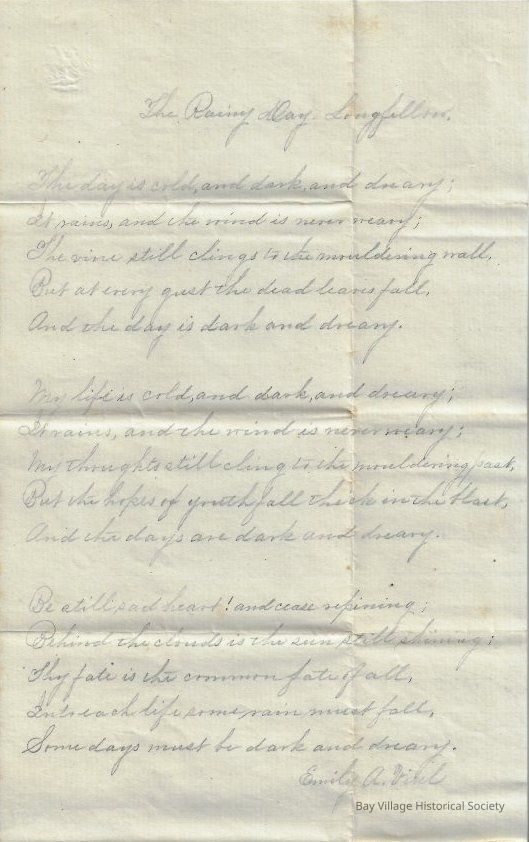 The Rainy Day. Longfellow.
The day is cold, and dark, and dreary;
It rains, and the wind is never weary;
The vine still clings to the mouldering wall,
But at every gust the dead leaves fall,
And the day is dark and dreary.
My life is cold, and dark, and dreary;
It rains, and the wind is never weary;
My thoughts still cling to the mouldering past,
But the hopes of youth fall thick in the blast,
And the days are dark and dreary.
Be still, sad heart! and cease repining;
Behind the clouds is the sun still shining;
Thy fate is the common fate of all,
Into each life some rain must fall,
Some days must be dark and dreary.
Emily A.
Bay Village Historical Society